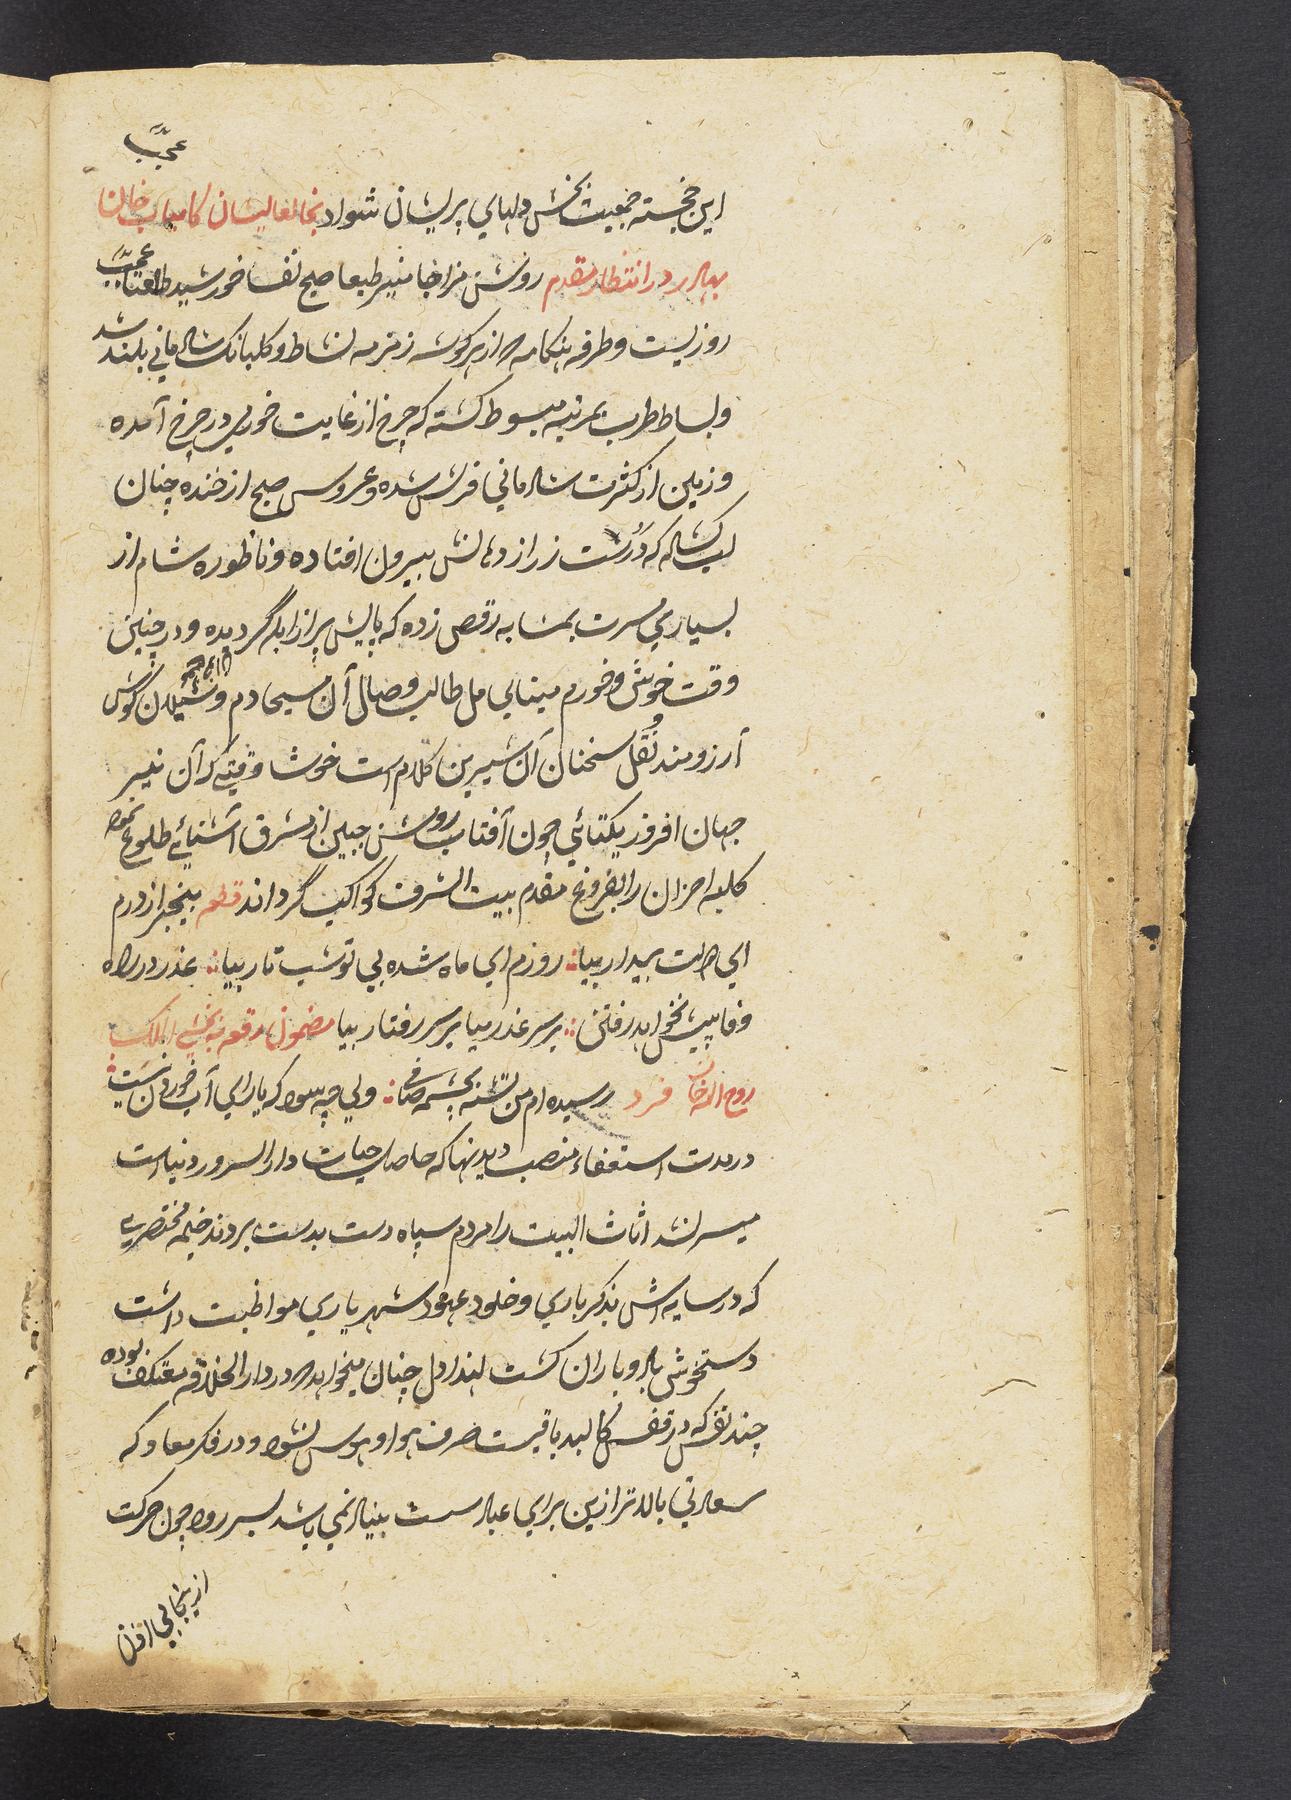 عجب
این خجسته جمعیت بخش دلهای پریشان شواد بخانعالیشان کامیاب خان
بهادر در انتظار مقدم روشن مزاجا منیر طبعا صبح نفسا خورشید طلعتا عجب
روزیست و طرفه هنکامه که از هر کوشه زمزمه نشاط و کلبانک شادمانی بلند شد
و بساط طرب بمرتبه مبسوط کشته که چرخ از غایت خورمی در چرخ آمده
و زمین از کثرت شادمانی فرش شده و عروس صبح از خنده چنان
لب کشاده که دُرُست زر از دهانش بیرون افتاده و ناظوره شام از
بسیاری مسرت بمثابه رقص زده که پایش پر از آبله گردیده و در چنین
وقت خوش و خورم مینای مل طالب وصال آن مسیحا دم و کوش
آرزومند نُقل سخنان آن شیرین کلام است خوشا وقتی که آن نیر
جهان افروز یکتائی چون آفتاب روشن جبین از مشرق آشنائی طلوع نموده
کلبه احزان را بفروغ مقدم بیت الشرف کواکب گرداند قطعه بیخبر از درم
ای دولت بیدار بیا ⁖ روزم ای ماه شده بی تو شب تار بیا ⁖ عذر در راه
وفا پیش نخواهد رفتن ⁖ بر سر عذر میا بر سر رفتار بیا مضمون رقعه بخشی الملک
روح الله خان فرد رسیده ام من تشنه بچشمه صافی ⁖ ولی چه سود که یارای آب خوردن نیست ⁖
در مدت استعفاء منصب دیدنیها که حاصل حیات دار السرور دنیاست
میسر نشد اثاث البیت را مردم سپاه دست بدست بردند خیمه مختصری
که در سایه اش بذکر باری و خلود عهود شهریاری مواظبت داشت
دستخوش باد و باران کشت لهذا دل چنان میخواهد که در دار الخلافه معتکف بوده
چند نفس که در قفس کالبد باقیست صرف هوا و هوس نشود و در فکر معاد که
سعادتی بالاتر ازین برای عباد سست بنیاد نمی باشد بسر رود چون حرکت
از بیجایی افزا